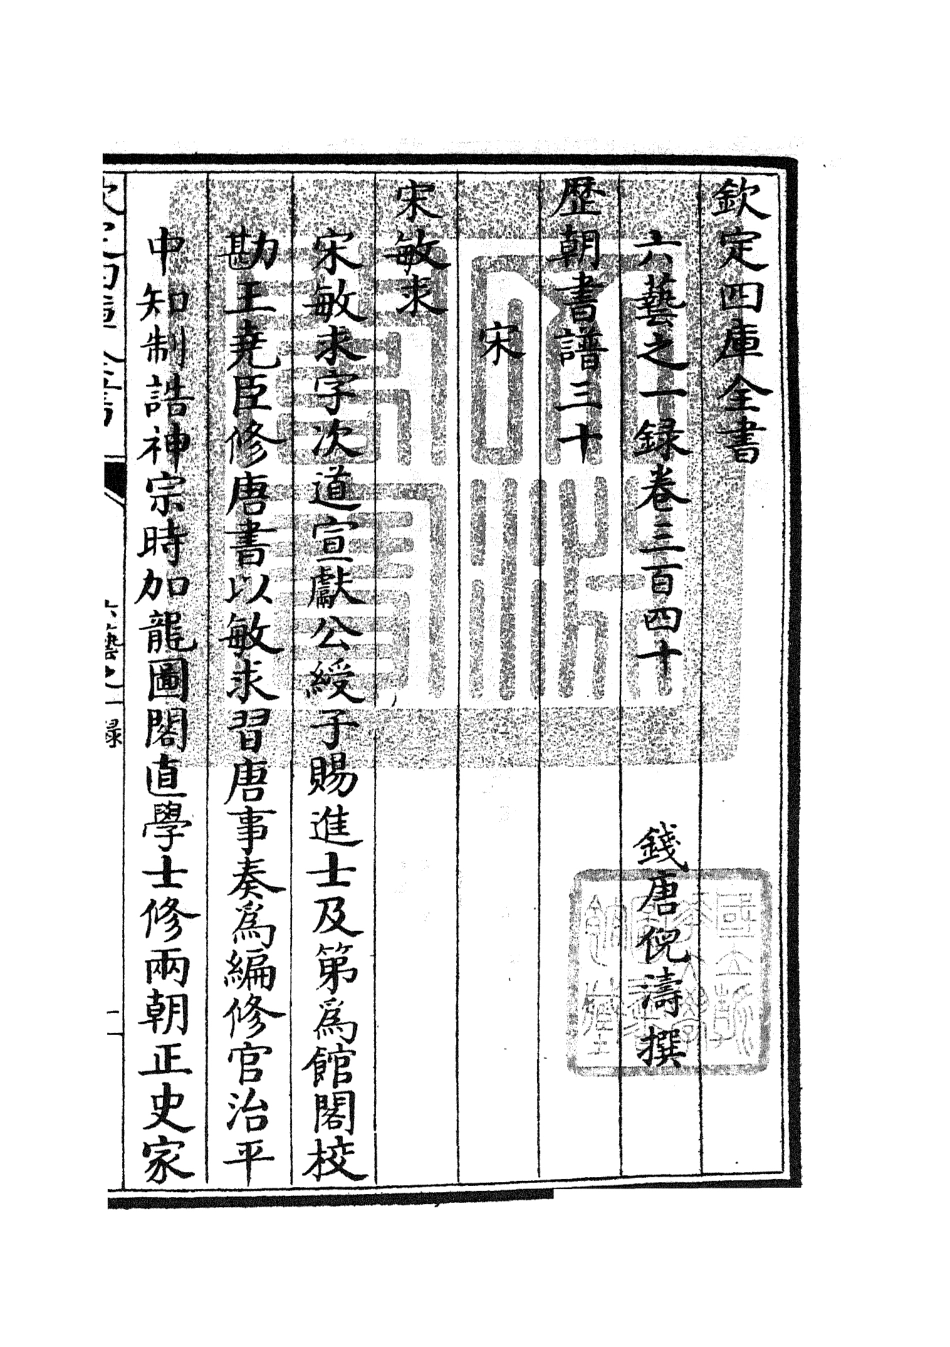 欽定四庫全書
六藝之一錄卷三百四十
錢唐倪濤撰
歷朝書譜三十
宋
宋敏求
宋敏求字次道宣獻公綬子賜進士及第為館閣校
勘王堯臣修唐書以敏求習唐事奏為編修官治平
中知制誥神宗時加龍圖閣直學士修兩朝正史家
六藝之一錄